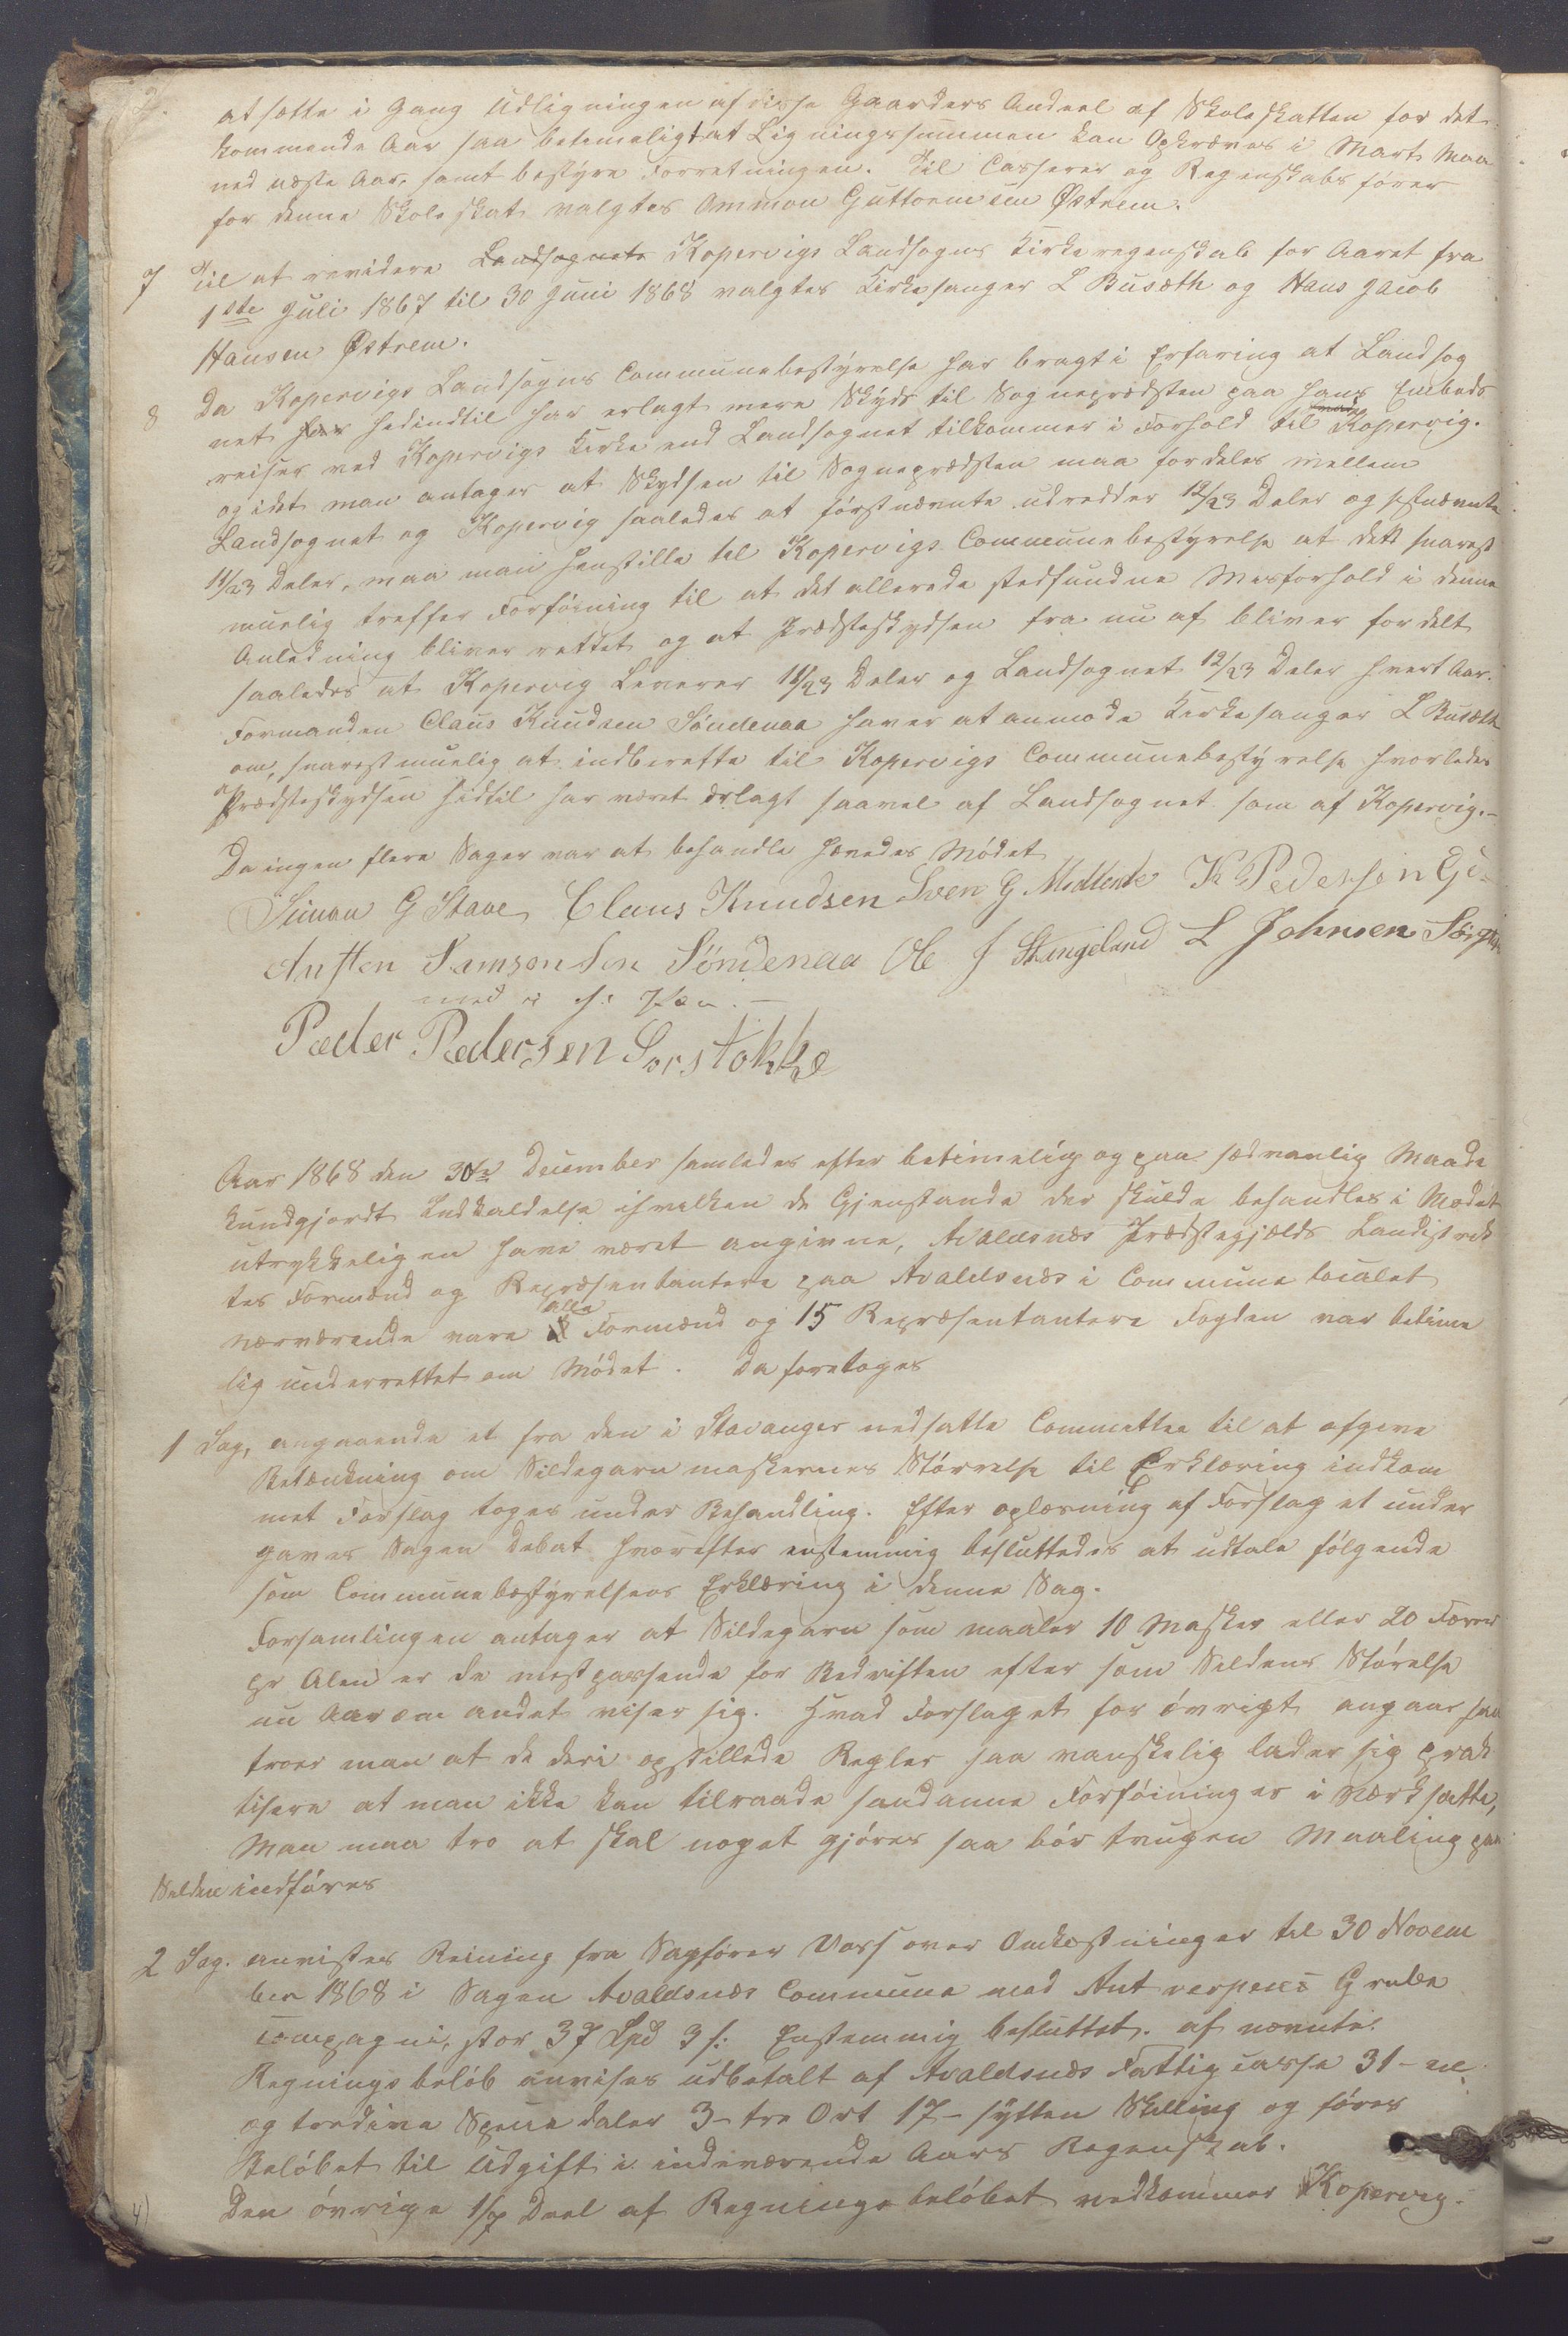 2.
at sætte i Gang Udligningen af disse Gaarders Andeel af Skoleskatten for det
kommende Aar saa betimeligt at Ligningssummen kan Opkræves i Marts Maa
ned næste Aar, samt bestyre Forretningen. Til Casserer og Regenskabsfører
for denne Skoleskat valgtes Ammon Guttormsen Østrem.
7 Til at revidere Landsognets Kopervigs Landsogns Kirkeregenskab for Aaret fra
1ste Juli 1867 til 30 Juni 1868 valgtes Kirkesanger L Busæth og Hans Jacob
Hansen Østrem.
8 Da Kopervigs Landsogns Communebestyrelse har bragt i Erfaring at Landsog
net har hidindtil har erlagt mere Skyds til Sogneprædsten paa hans Embeds
reiser ved Kopervigs Kirke end Landsognet tilkommer i Forhold til Kopervig.
og idet man antager at Skydsen til Sogneprædsten maa fordeles mellem
Landsognet og Kopervig saaledes at førstnævnte udredder 12/23 Deler og sistnævnte
11/23 Deler, maa man henstille til Kopervigs Communebestyrelse at dett snarest
muelig treffer Forføining til at det allerede stedfundne Misforhold i denne
Anledning bliver rettet og at Prædsteskydsen fra nu af bliver fordelt
saaledes at Kopervig Leverer 11/23 Deler og Landsognet 12/23 Deler hvert Aar.
Formanden Claus Knudsen Søndenaa haver at anmode Kirkesanger L Busæth
om, snarest muelig at indberette til Kopervigs Communebestyrelse hvorledes
Prædsteskydsen hidtil har været erlagt saavel af Landsognet som af Kopervig.-
Da ingen flere Sager var at behandle hævedes Mødet
Simon G Stave Claus Knudsen Sven G Medlende K Pedersen
Austen Samsonsen Søndenaa Ole J Stangeland L Johnsen
med
Peder Pedersen Sørstokke
Aar 1868 den 30te December samledes efter betimelig og paa sædvanlig Maade
kundgjordt Indkaldelse ihvilken de Gjenstande der skulde behandles i Mødet
utrykkeligen have været angivne, Avaldsnæs Prædstegjælds Landistrik
tes Formænd og Repræsentantere paa Avaldsnæs i Communelocalet
nærværende vare alle Formænd og 15 Repræsentantere Fogden var betime
lig underrettet om Mødet. Da foretoges
1 Sag, angaaende et fra den i Stavanger nedsatte Committee til at afgive
Betænkning om Sildegarnmaskernes Størrelse til Erklæring indkom
met Forslag toges under Behandling. Efter oplæsning af Forslaget under
gaves Sagen Debat hvorefter enstemmig besluttedes at udtale følgende
som Communebestyrelsens Erklæring i denne Sag.
Forsamlingen antager at Sildegarn som maaler 10 Masker eller 20
pr Alen er de mest passende for Bedriften efter som Sildens Størelse
nu Aar om andet viser sig. Hvad Forslaget for øvrigt angaar saa
troer man at de deri opstillede Regler saa vanskelig lader sig prak
tisere at man ikke kan tilraade saadanne Forføininger i Værksatte,
Man maa tro at skal noget gjøres saa bør tvugen Maaling paa
Silden indføres
2 Sag. anvistes Reining fra Sagfører Vors over Omkostninger til 30 Novem
ber 1868 i Sagen Avaldsnæs Commune med Antverpens Grube
compagni, stor 37 Spd 3 s: Enstemmig besluttet. af nævnte
Regningsbeløb anvises udbetalt af Avaldsnæs Fattigcasse 31 - en
og tredive Speciedaler 3 - tre Ort 17 - sytten Skilling og føres
Beløbet til Udgift i indeværende Aars Regenskab.
Den øvrige 1/7 Deel af Regningsbeløbet vedkommer Kopervig.
4)